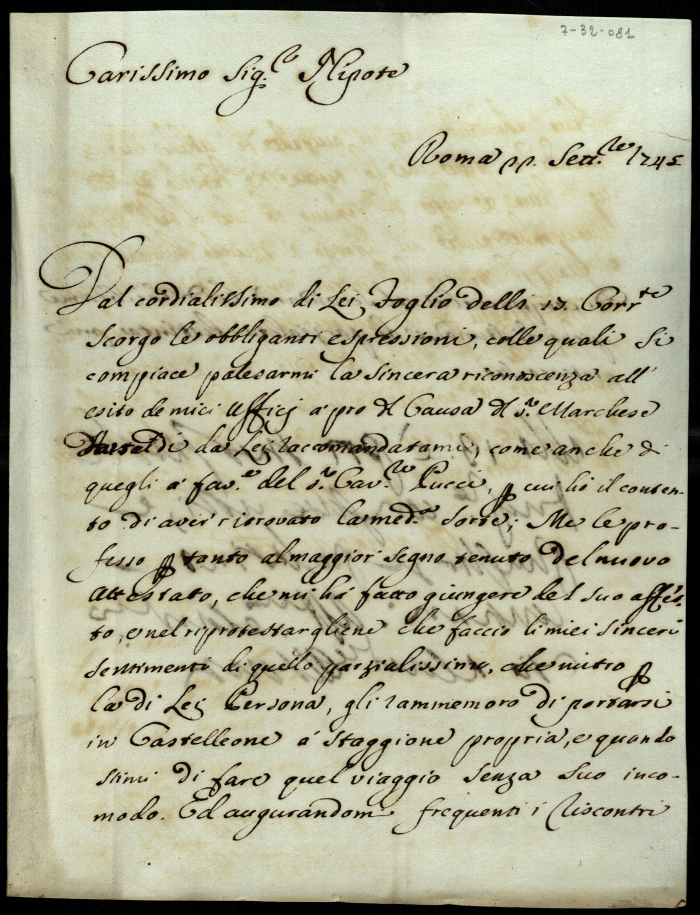 7-32-081
Carissimo Sig.re Nipote
Roma 22. Sett.re 1745
Dal cordialissimo di Lei Foglio delli 13. Corr.te
scorgo le obbliganti espressioni, colle quali si
compiace palesarmi la sincera riconoscenza all'
esito de miei Ufficj a pro di Causa del S.r Marchese
da Lei raccomandatami, come anche di
quegli a fav.e del S.r Cav.re Pucci, p cui hò il conten-
to di aver ritrovato la med.a sorte; Me le pro-
fesso p tanto al maggior segno tenuto del nuovo
attestato, che mi hà fatto giungere del suo affet-
to, e nel riprotestargliene che faccio li miei sinceri
sentimenti di quello parzialissimo, che nutro p
la di Lei Persona, gli rammemoro di portarsi
in Castelleone à staggione propria, e quando
stimi di fare quel viaggio senza suo inco-
modo. Ed augurandomi frequenti i riscontri